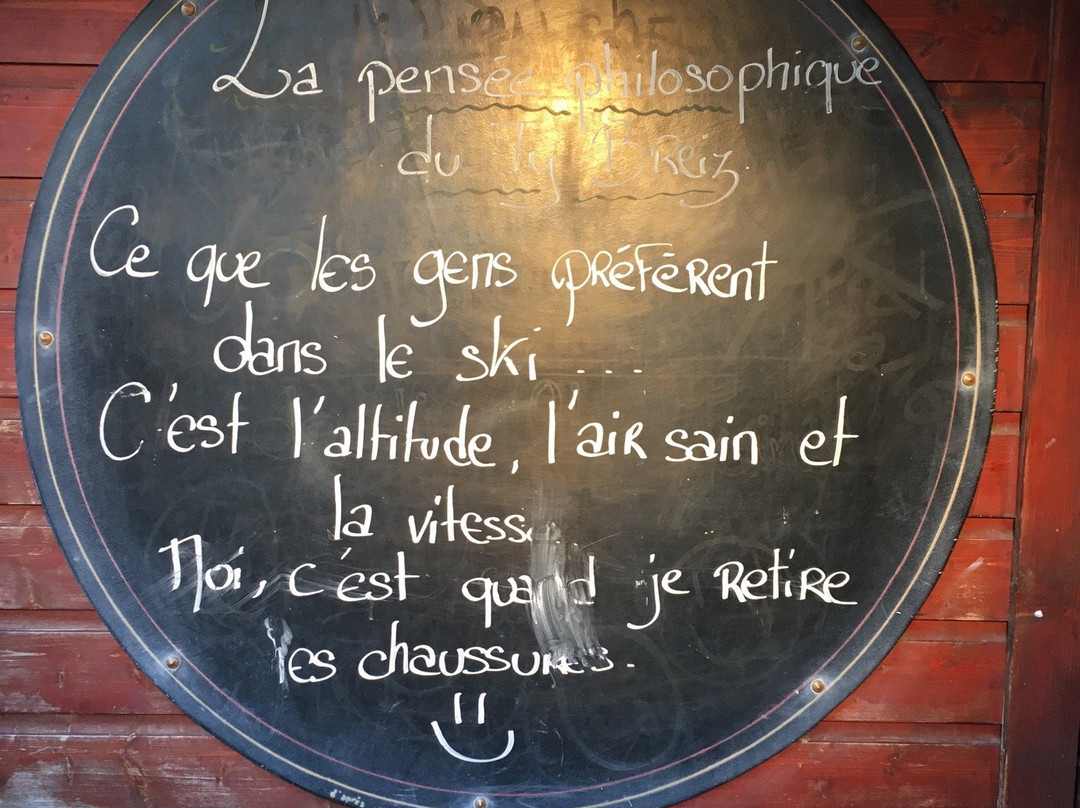 La pensée philosophique
du Ty Breiz.
Ce que les gens préfèrent
dans le ski ...
C'est l'altitude, l'air sain et
la vitesse
Moi, c'est quand je retire
les chaussures.
d'après